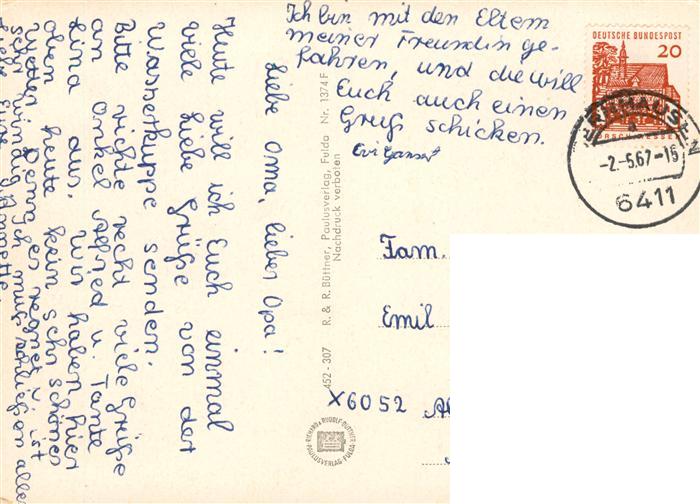 Liebe Oma, lieber Opa!
Heute will ich Euch einmal
viele liebe Grüße von der
Wasserkuppe senden.
Bitte richte recht viele Grüße
an Onkel Alfred u. Tante
Lina aus. Wir haben hier
oben heute kein sehr schönes
Wetter. Denn es regnet u. ist
sehr windig. Ich muß schließen alles
Liebe Eure
Ich bin mit den Eltern
meiner Freundin ge-
fahren, und die will
Euch auch einen
Gruß schicken.
Evi
R. & R. Büttner, Paulusverlag, Fulda Nr. 1374 F
Nachdruck verboten
452 - 307
RICHARD + RUDOLF BÜTTNER
PAULUSVERLAG FULDA
DEUTSCHE BUNDESPOST
20
-2.-5.67-15
6411
Fam.
Emil
X6052